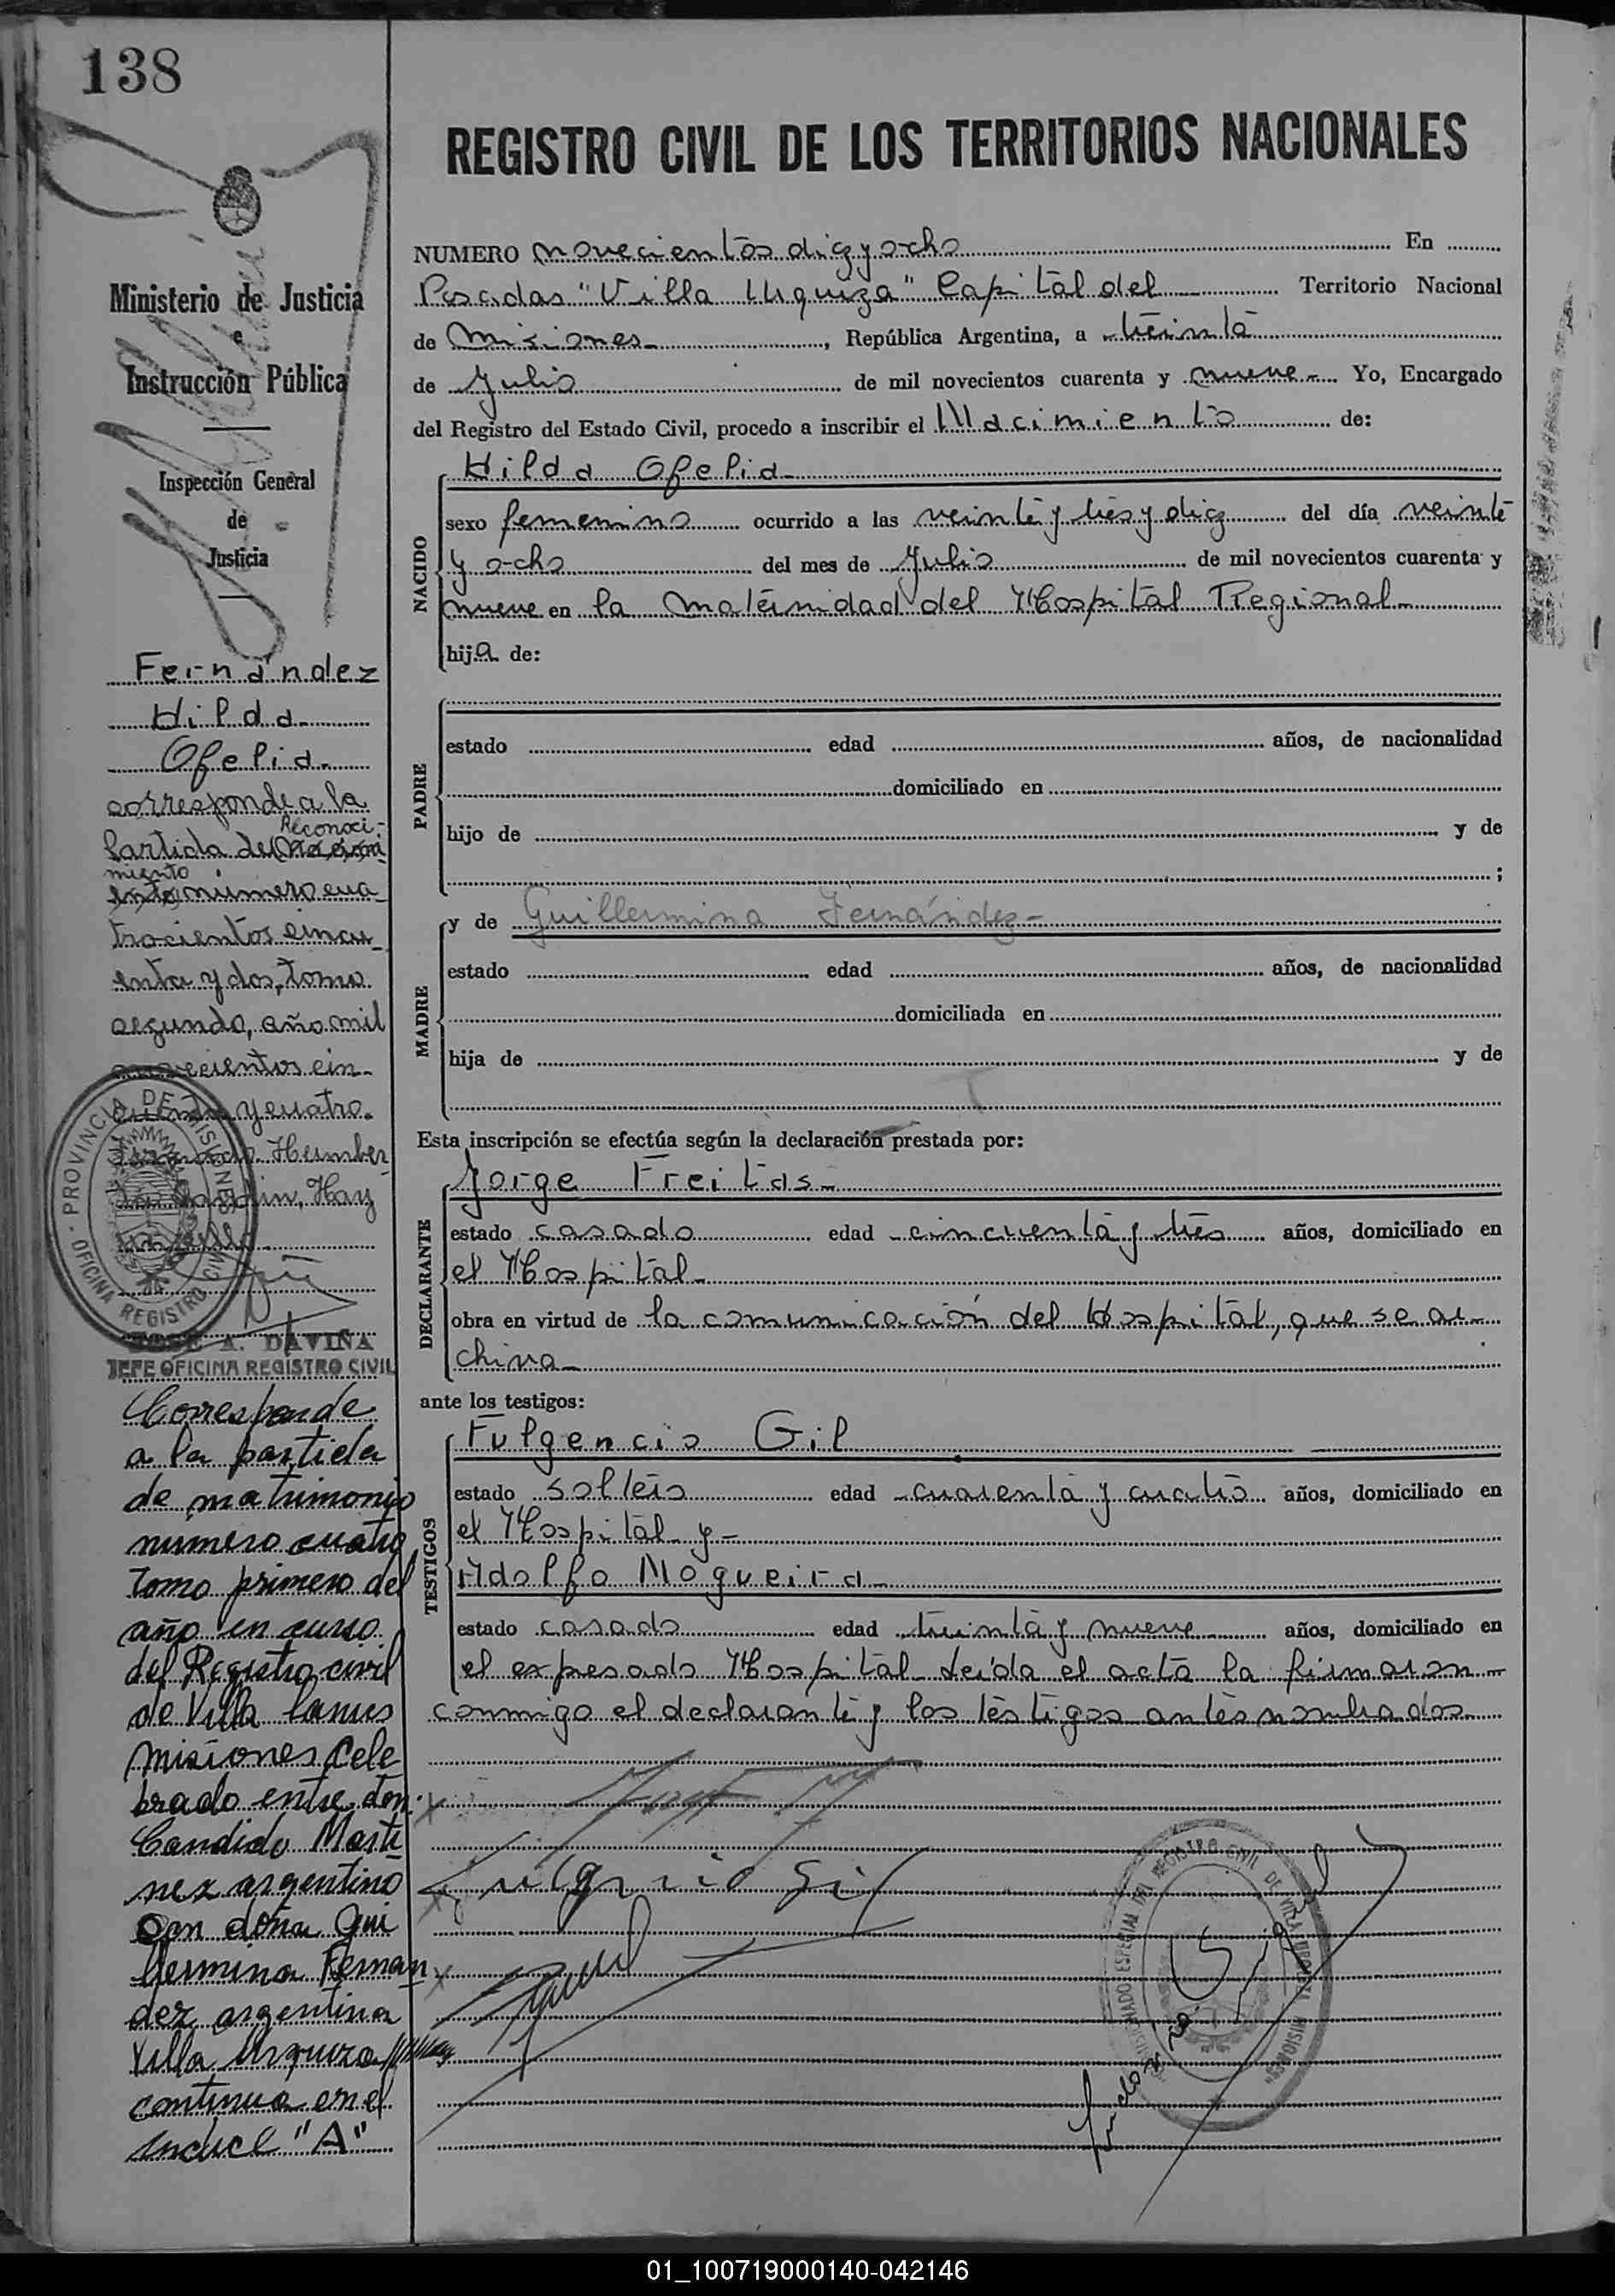 138
REGISTRO CIVIL DE LOS TERRITORIOS NACIONALES
Ministerio de Justicia
e
Instrucción Pública
Inspección General
de
Justicia
Fernández
Hilda
Ofelia
corresponde a la
Reconoci-
Partida de
miento
número cua
trocientos cincu
enta y dos, tomo
segundo, año mil
novecientos cin-
cuenta y cuatro.
Humber
JOSE A. DAVIÑA
JEFE OFICINA REGISTRO CIVIL
PROVINCIA DE MISIONES
OFICINA REGISTRO CIVIL
Corresponde
a la partida
de matrimonio
número cuatro
Tomo primero del
año en curso
del Registro civil
de Villa Lanus
Misiones Cele
brado entre don
Candido Marti
nez argentino
con doña Gui
llermina Fernan
dez argentina
Villa Urquiza
continua en el
indice "A"
NUMERO novecientos diez y ocho En
Posadas "Villa Urquiza" Capital del Territorio Nacional
de Misiones, República Argentina, a treinta
de Julio de mil novecientos cuarenta y nueve Yo, Encargado
del Registro del Estado Civil, procedo a inscribir el Nacimiento de:
NACIDO
Hilda Ofelia
sexo femenino ocurrido a las veinte y tres y diez del día veinte
y ocho del mes de Julio de mil novecientos cuarenta y
nueve en la maternidad del Hospital Regional
hija de:
PADRE
estado edad años, de nacionalidad
domiciliado en
hijo de y de
;
MADRE
y de Guillermina Fernández
estado edad años, de nacionalidad
domiciliada en
hija de y de
Esta inscripción se efectúa según la declaración prestada por:
DECLARANTE
Jorge Freitas
estado casado edad cincuenta y tres años, domiciliado en
el Hospital
obra en virtud de la comunicación del Hospital, que se ar-
chiva
ante los testigos:
TESTIGOS
Fulgencio Gil
estado soltero edad cuarenta y cuatro años, domiciliado en
el Hospital y
Adolfo Nogueira
estado casado edad treinta y nueve años, domiciliado en
el expresado Hospital Leída el acta la firmaron
conmigo el declarante y los testigos antes nombrados
Fulgencio Gil
01_100719000140-042146